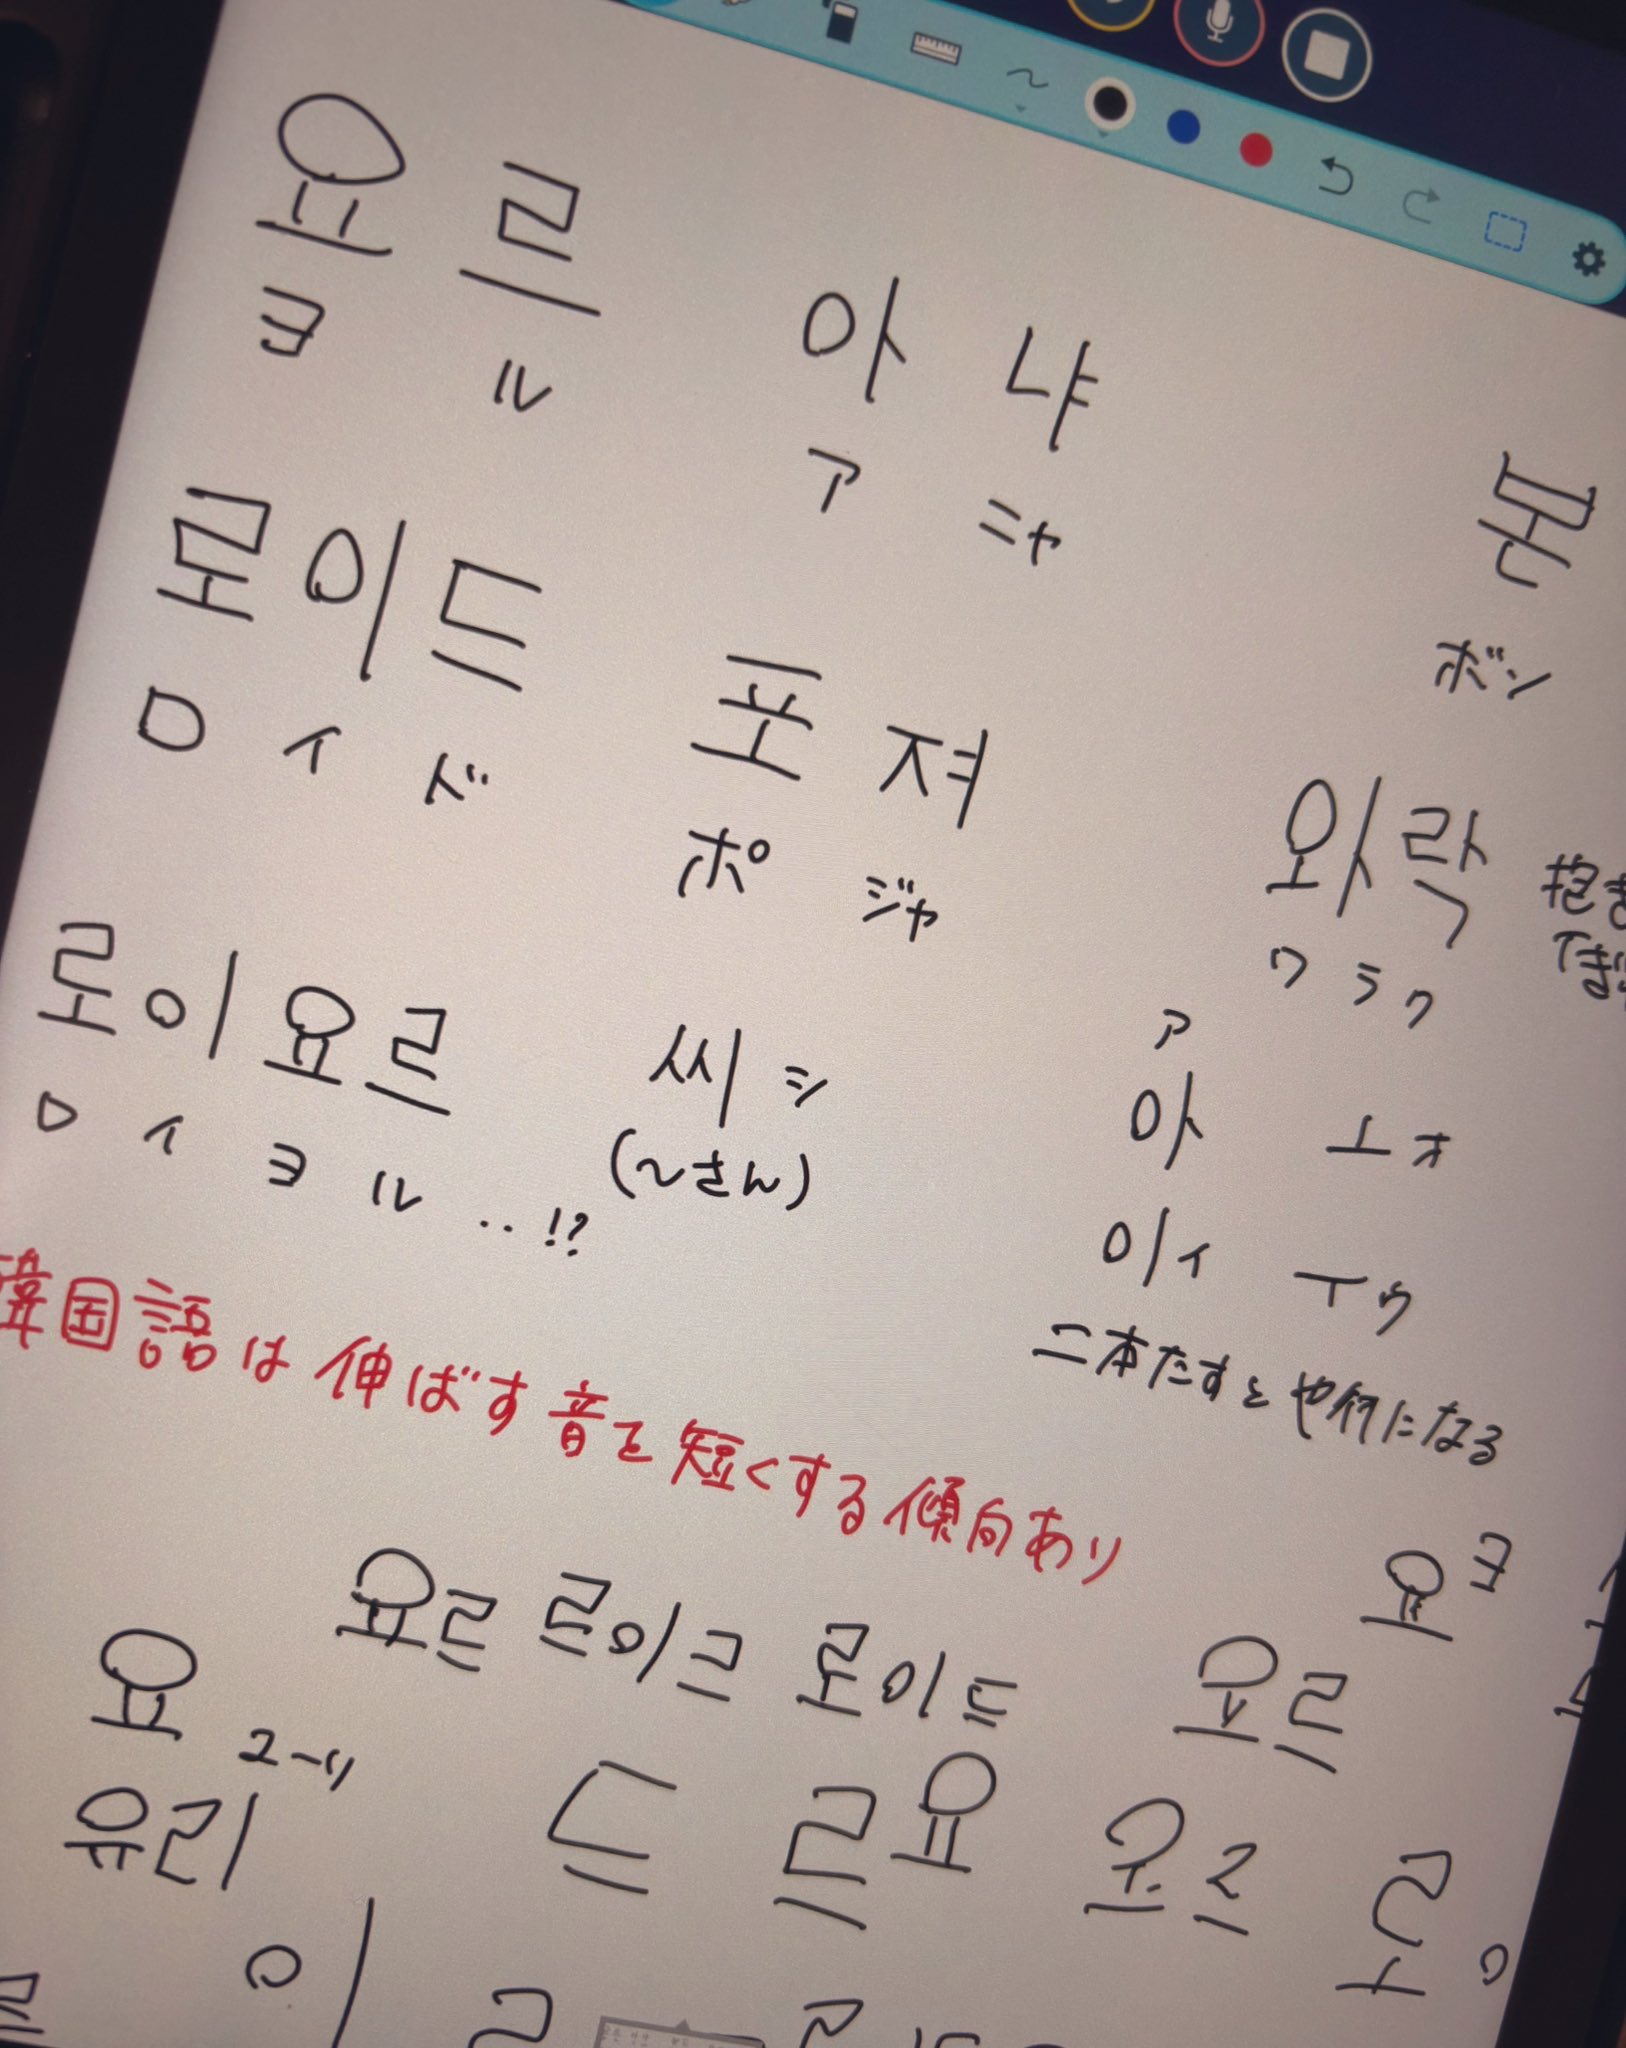 요르
ヨ ル
아냐
ア ニャ
본
ボン
로이드
ロ イ ド
포져
ポ ジャ
와락
ワ ラ ク
로이요르
ロ イ ヨ ル ‥!?
씨 シ
(〜さん)
ア
아 ㅗ オ
이 イ ㅜ ウ
二本たすとや行になる
韓国語は伸ばす音を短くする傾向あり
요르 르이크 로이드
요 ヨ
요르
요
ユーリ
유리
드 르 요
이